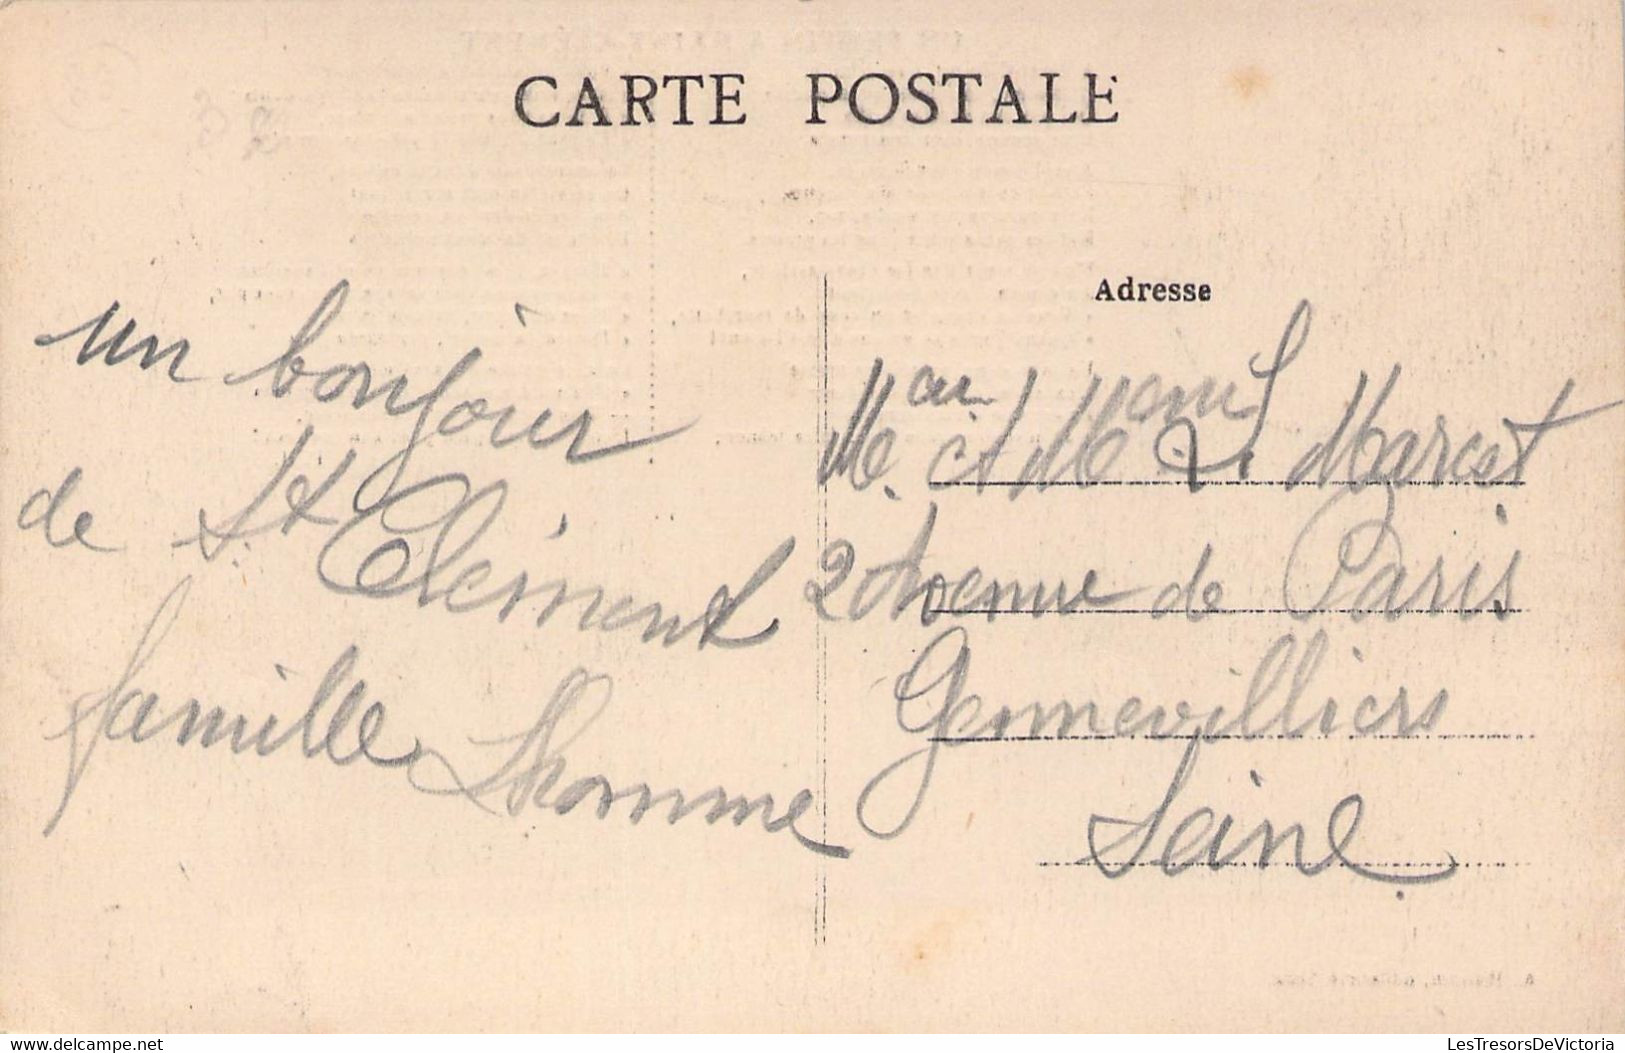 CARTE POSTALE
Adresse
un bonjour
de St Clément
famille Lhomme
et Marcst
2 Avenue de Paris
Gennevilliers
Seine
www.delcampe.net
LesTresorsDeVictoria